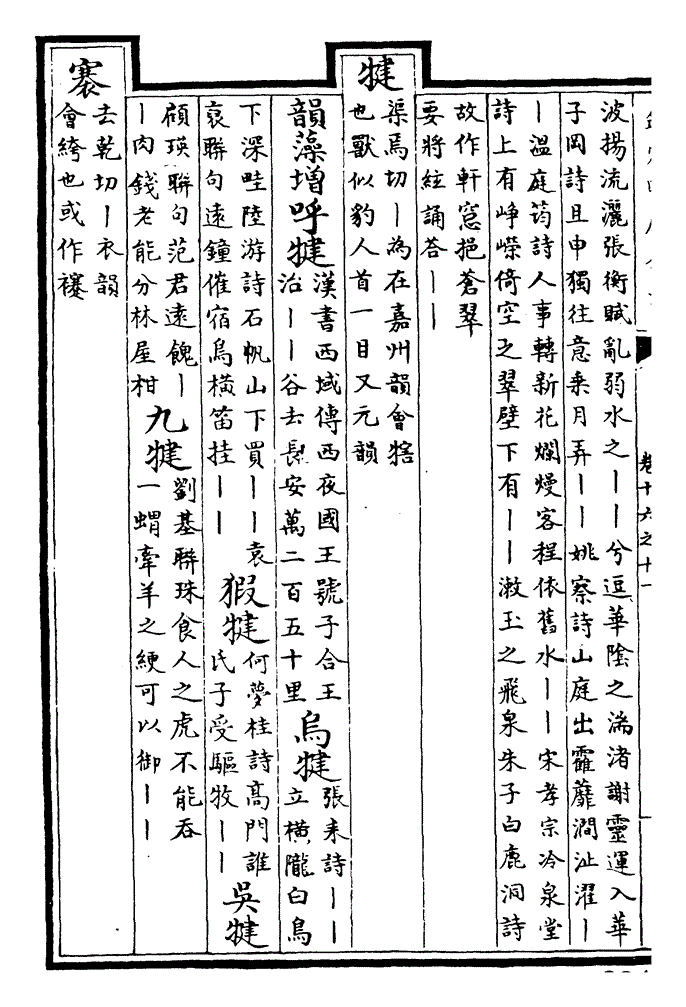 卷十六之十一
波揚流灑張衡賦亂弱水之｜｜兮逗華陰之湍渚謝靈運入華
子岡詩且申獨往意乗月弄｜｜姚察詩山庭出藿蘼澗沚濯｜
｜溫庭筠詩人事轉新花爛熳客程依舊水｜｜宋孝宗冷泉堂
詩上有崢嶸倚空之翠壁下有｜｜漱玉之飛泉朱子白鹿洞詩
故作軒窓挹蒼翠
要將絃誦荅｜｜
犍
渠焉切｜為在嘉州韻會犗
也獸似豹人首一目又元韻
韻藻增呼犍
漢書西域傳西夜國王號子合王
治｜｜谷去長安萬二百五十里
烏犍
張耒詩｜｜
立橫隴白鳥
下深畦陸游詩石帆山下買｜｜袁
裒聯句遠鐘催宿烏橫笛挂｜｜
猳犍
何夢桂詩高門誰
氏子受驅牧｜｜
吳犍
顧瑛聯句范君遠餽｜
｜肉錢老能分林屋柑
九犍
劉基聯珠食人之虎不能吞
一蝟牽羊之綆可以御｜｜
褰
去乾切｜衣韻
會絝也或作襱